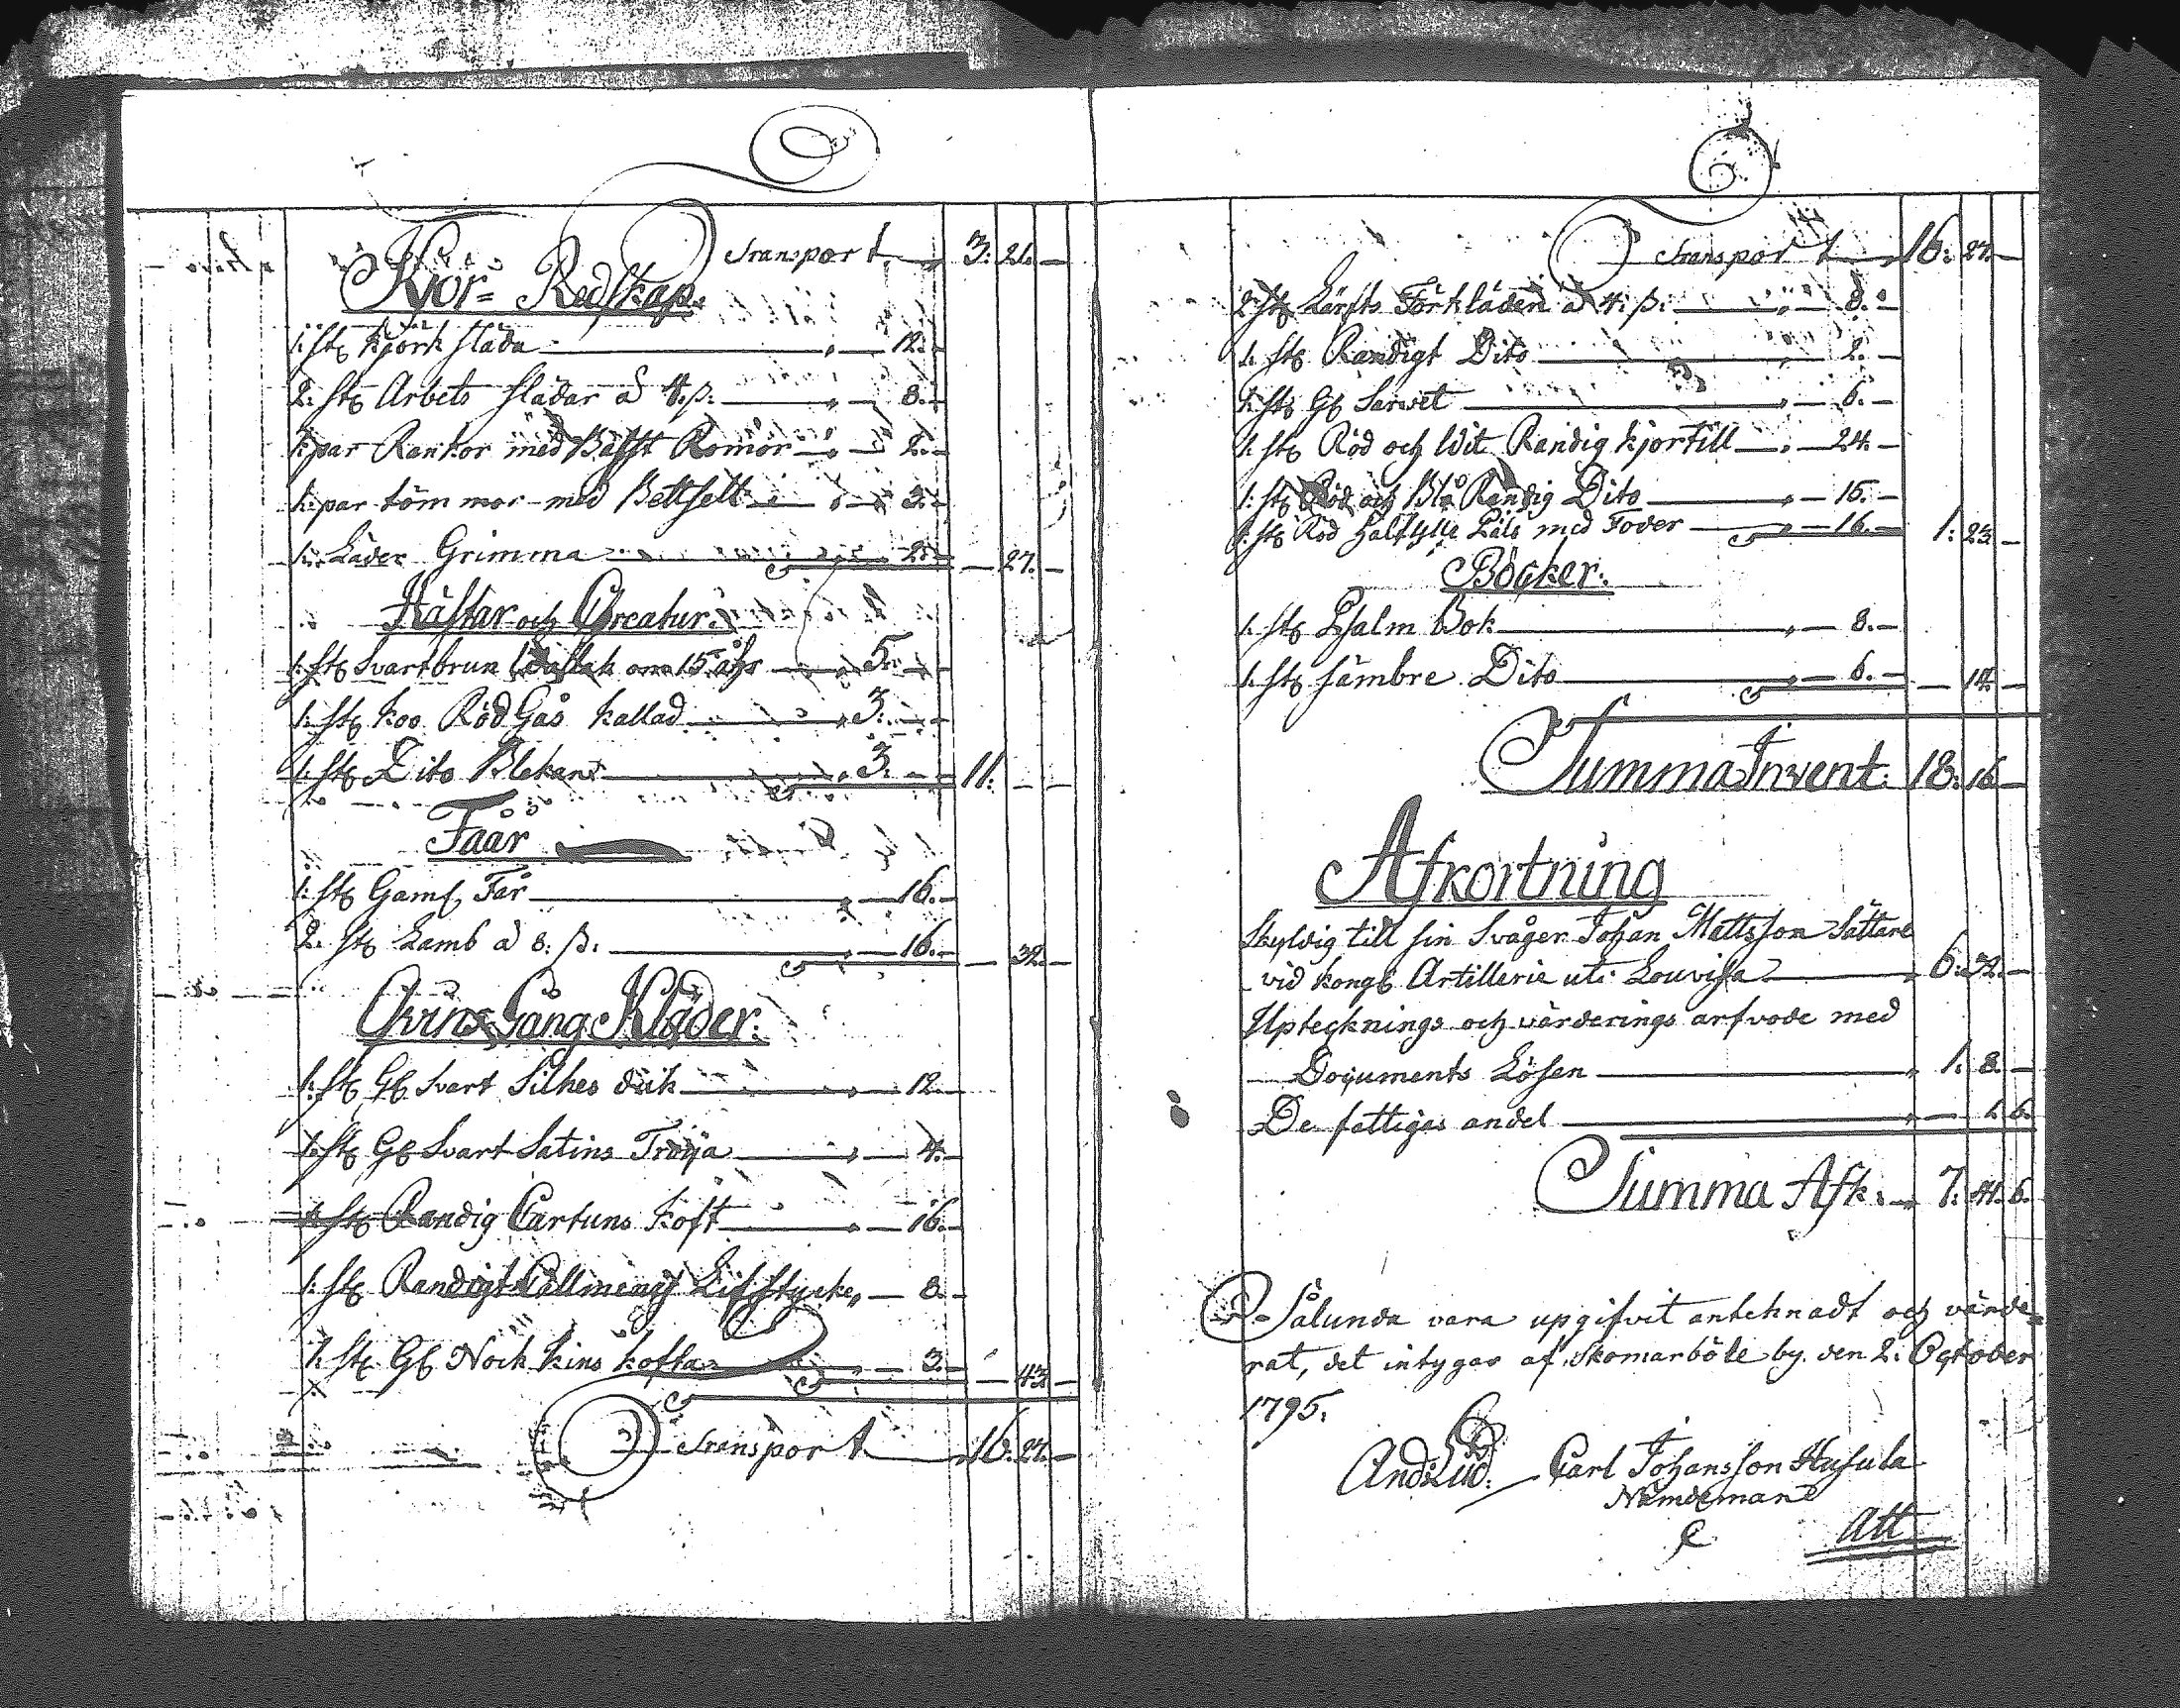 Transport 3: 21. —
Kjör= Redskap.
1: st: kjörk släda — 12. —
2: st: Arbets slädar á 4. ß: — 8. —
1: par Rankor med Bässt Romor — 2. —
1: par tömmor med Bettselt — 3. —
1: Läder Grimma — 2: — — 27. —
Hästar och Creatur:
1: st: Svartbrun Wallak om 15 åhr — 5. —
1: st: koo Röd Gås kallad — 3: —
1: st: Dito Blekan — 3: — 11: — —
Fåår
1: st: Gam: Får — 16. —
2: st: Lamb á 8: ß: — 16. — — 32. —
Qvins Gång Kläder:
1: st: Gl: Svart Silkes duk — 12. —
1: st: Gl: Svart Satins Tröija — 4. —
1: st: Randig Cartuns koft — 16. —
1: st: Randigt Lifstycke, — 8. —
1: st: Gl: kofta — 3. — — 43. —
Transport 16: 27. —
Transport 16: 27. —
2: st: Lärfts Förkläden á 4: ß: — 8. —
1. st: Randigt Dito — 2. —
1: st: Gl: Servet — 6. —
1: st: Röd och Wit Randig kjortill — 24. —
1: st: Röd och Blå Randig Dito — 15. —
1: st: Röd Päls med Foder — 16. — 1: 23. —
Böcker:
1. st: Psalm Bok — 8. —
1. st: sämbre Dito — 6. — — 14. —
Summa Invent: 18: 16 —
Afkortning
Skyldig till sin Svåger Johan Mattsson Sättare
vid kongl: Artillerie uti Lovisa — 6: 32. —
Uptecknings och värderings arfvode med
Documents Lösen — 1: 8. —
De fattigas andel — 1. 6.
Summa Afk: — 7: 41. 6.
Sålunda vara upgifvit antecknadt och värde=
rat, det intygas af Skomarböle by. den 2: October
1795.
And: Lud: Carl Johansson Husula
Nämdeman
Att